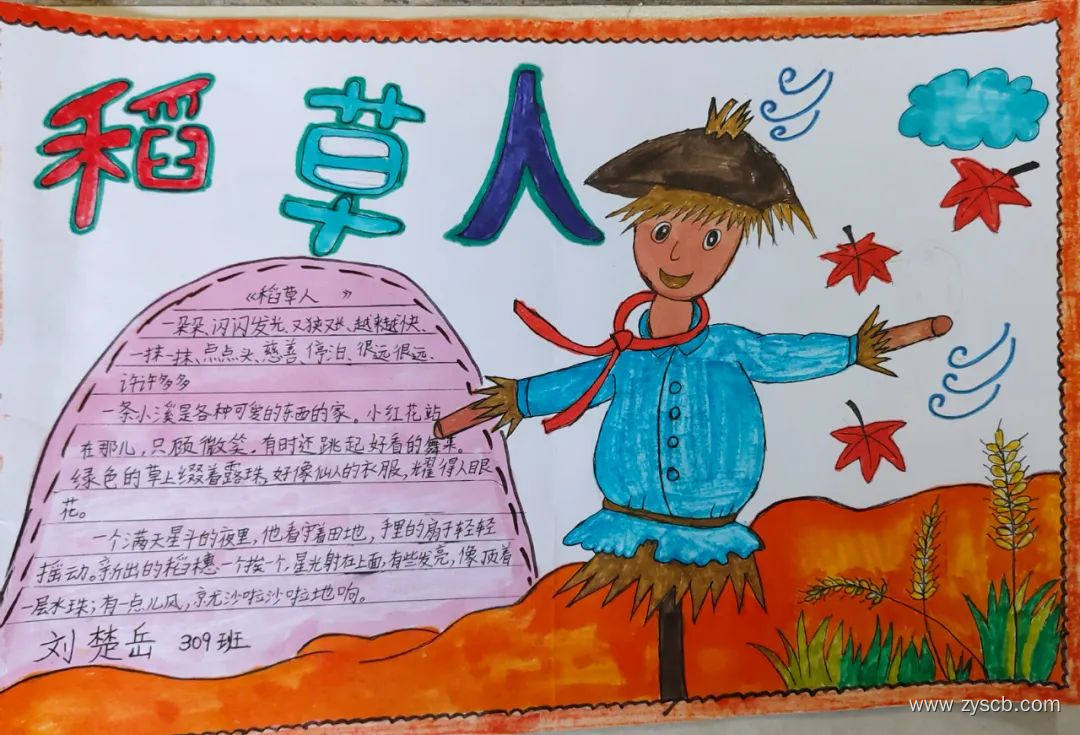 稻草人
《稻草人 》
一朵朵、闪闪发光、又狭又长、越来越快、
一抹一抹、点点头、慈善、停泊、很远很远、
许许多多
一条小溪是各种可爱的东西的家。小红花站
在那儿，只顾微笑，有时还跳起好看的舞来。
绿色的草上缀着露珠，好像仙人的衣服，耀得人眼
花。
一个满天星斗的夜里，他看守着田地，手里的扇子轻轻
摇动。新出的稻穗一个挨一个，星光射在上面，有些发亮，像顶着
一层水珠；有一点儿风，就沙啦沙啦地响。
刘楚岳 309班
www.zyscb.com